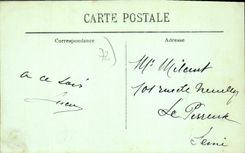 CARTE POSTALE
Correspondance
Adresse
72
Mr Milcent
101 rue de Neuilly
Le Perreux
Seine
a ce soir